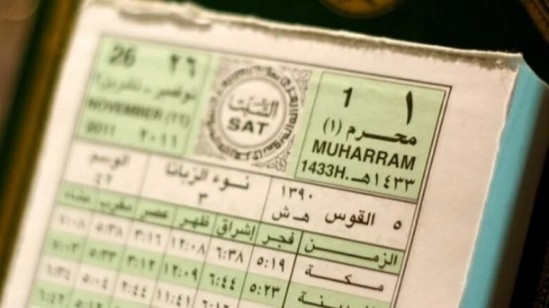 26 ٢٦
نوفمبر - تشرين٢
NOVEMBER (11)
2011 ٢٠١١
السبت
SAT
1 ١
محرم (١)
MUHARRAM
1433H. ١٤٣٣هـ
٥ القوس ١٣٩٠ هـ ش
نوء الزبانا ٣
الوسم ٤٢
الزمن فجر إشراق ظهر عصر مغرب عشاء
مكة ٥:١٩ ٦:٣٨ ١٢:٠٨ ٣:١٦ ٥:٣٨ ٧:٠٨
٥:٢٣ ٦:٤٤ ١٢:٠٩ ٣:١٢ ٥:٣٣ ٧:٠٣